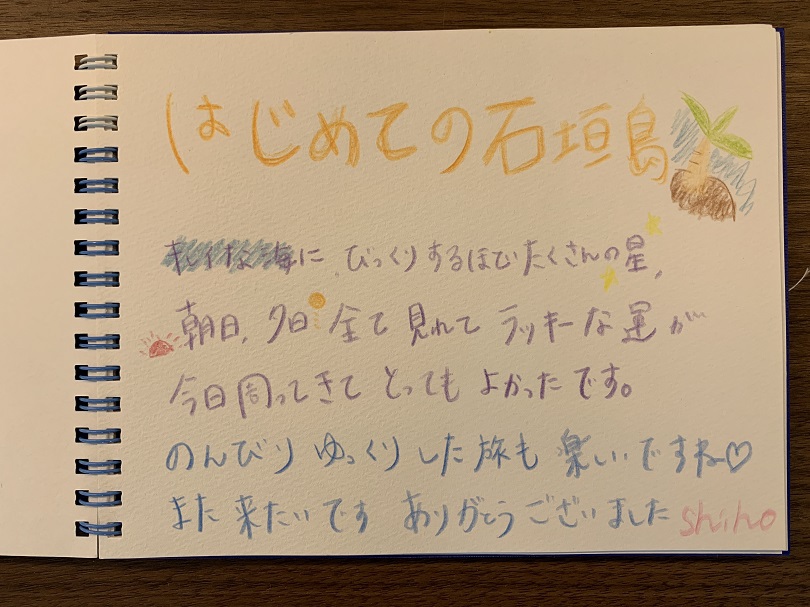 はじめての石垣島
キレイな海に、びっくりするほどたくさんの星、
朝日、夕日 全て見れて ラッキーな運が
今日周ってきて とっても よかったです。
のんびり ゆっくりした旅も 楽しいですね♡
また 来たいです ありがとうございました shiho